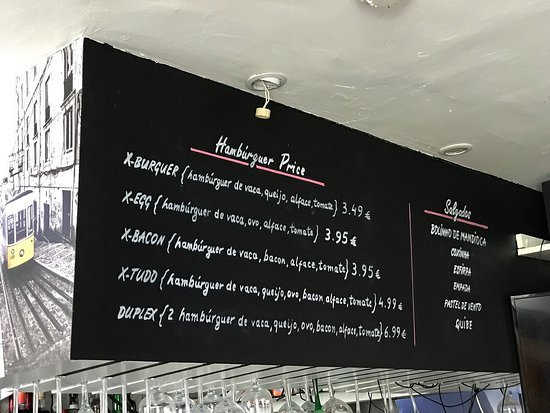 Hambúrguer Price
X-BURGUER {hambúrguer de vaca, queijo, alface, tomate} 3.49 €
X-EGG {hambúrguer de vaca, ovo, alface, tomate} 3.95 €
X-BACON {hambúrguer de vaca, bacon, alface, tomate} 3.95 €
X-TUDO {hambúrguer de vaca, queijo, ovo, bacon, alface, tomate} 4.99 €
DUPLEX {2 hambúrguer de vaca, queijo, ovo, bacon, alface, tomate} 6.99 €
Salgados
BOLINHO DE MANDIOCA
COXINHA
ESFIRRA
EMPADA
PASTEL DE VENTO
QUIBE